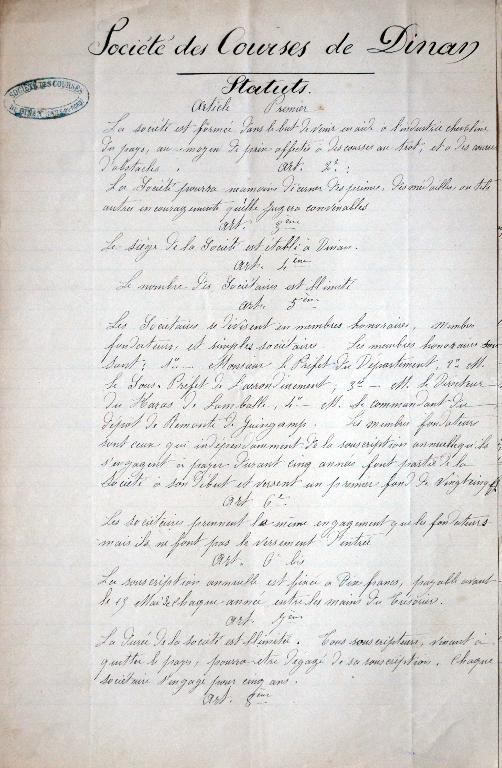 Société des Courses de Dinan
Statuts.
SOCIÉTÉ DES COURSES
DE DINAN
Article Premier
La société est formée dans le but de venir en aide à l'industrie chevaline
du pays, au moyen de prix affectés à des courses au trot, et à des courses
d'obstacles. Art. 2e.
La Société pourra néanmoins décerner des primes, des médailles, ou tels
autres encouragements qu'elle jugera convenables
Art. 3ème
Le siège de la Société est établi à Dinan.
Art. 4ème
Le nombre des Sociétaires est illimité
Art. 5ème
Les Sociétaires se divisent en membres honoraires, membres
fondateurs et simples sociétaires. Les membres honoraires
sont: 1o — Monsieur le Préfet du Département; 2o M.
le Sous-Préfet de l'arrondissement; 3o — M. le Directeur
du Haras de Lamballe, 4o — M. le commandant du
dépot de Remonte de Guingamp. Les membres fondateurs
sont ceux qui indépendamment de la souscription annuelle qu'ils
s'engagent à payer durant cinq années font partie de la
Société à son début et versent un premier fond de vingt cinq f
Art 6e
Les sociétaires prennent le même engagement que les fondateurs
mais ils ne font pas le versement d'entrée
Art. 6 bis
La souscription annuelle est fixée à Dix francs, payable avant
le 15 Mai de chaque année entre les mains du Trésorier.
Art. 7ème
La durée de la société est illimitée. Tous souscripteurs, venant à
quitter le pays, pourra être dégagé de sa souscription. Chaque
sociétaire s'engage pour cinq ans.
Art. 8ème